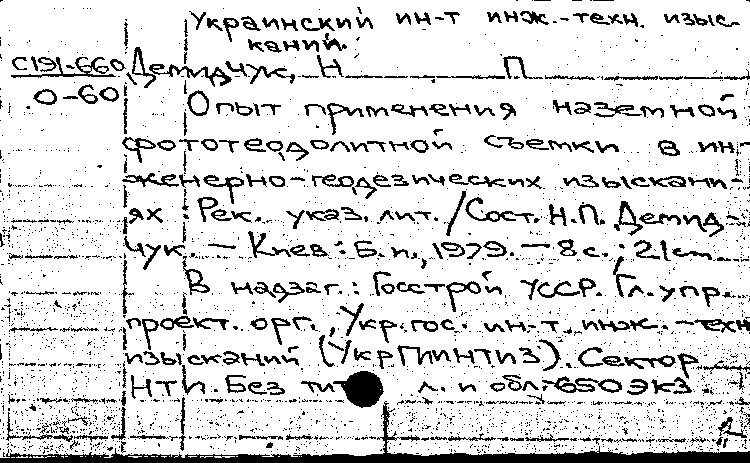 Украинский ин-т инж.-техн. изыс-
каний.
С191-660 Демидчук, Н П
0-60
Опыт применения наземной
фототеодолитной съемки в ин-
женерно-геодезических изыскани-
ях : Рек. указ. лит. / Сост. Н.П. Демид-
чук. — Киев : Б.и., 1979. — 8 с. ; 21 см.
В надзаг. : Госстрой УССР. Гл. упр.
проект. орг., Укр. гос. ин-т инж.-техн
изысканий (УкрГИИНТИЗ). Сектор
НТИ. Без тит л. и обл. 650 экз